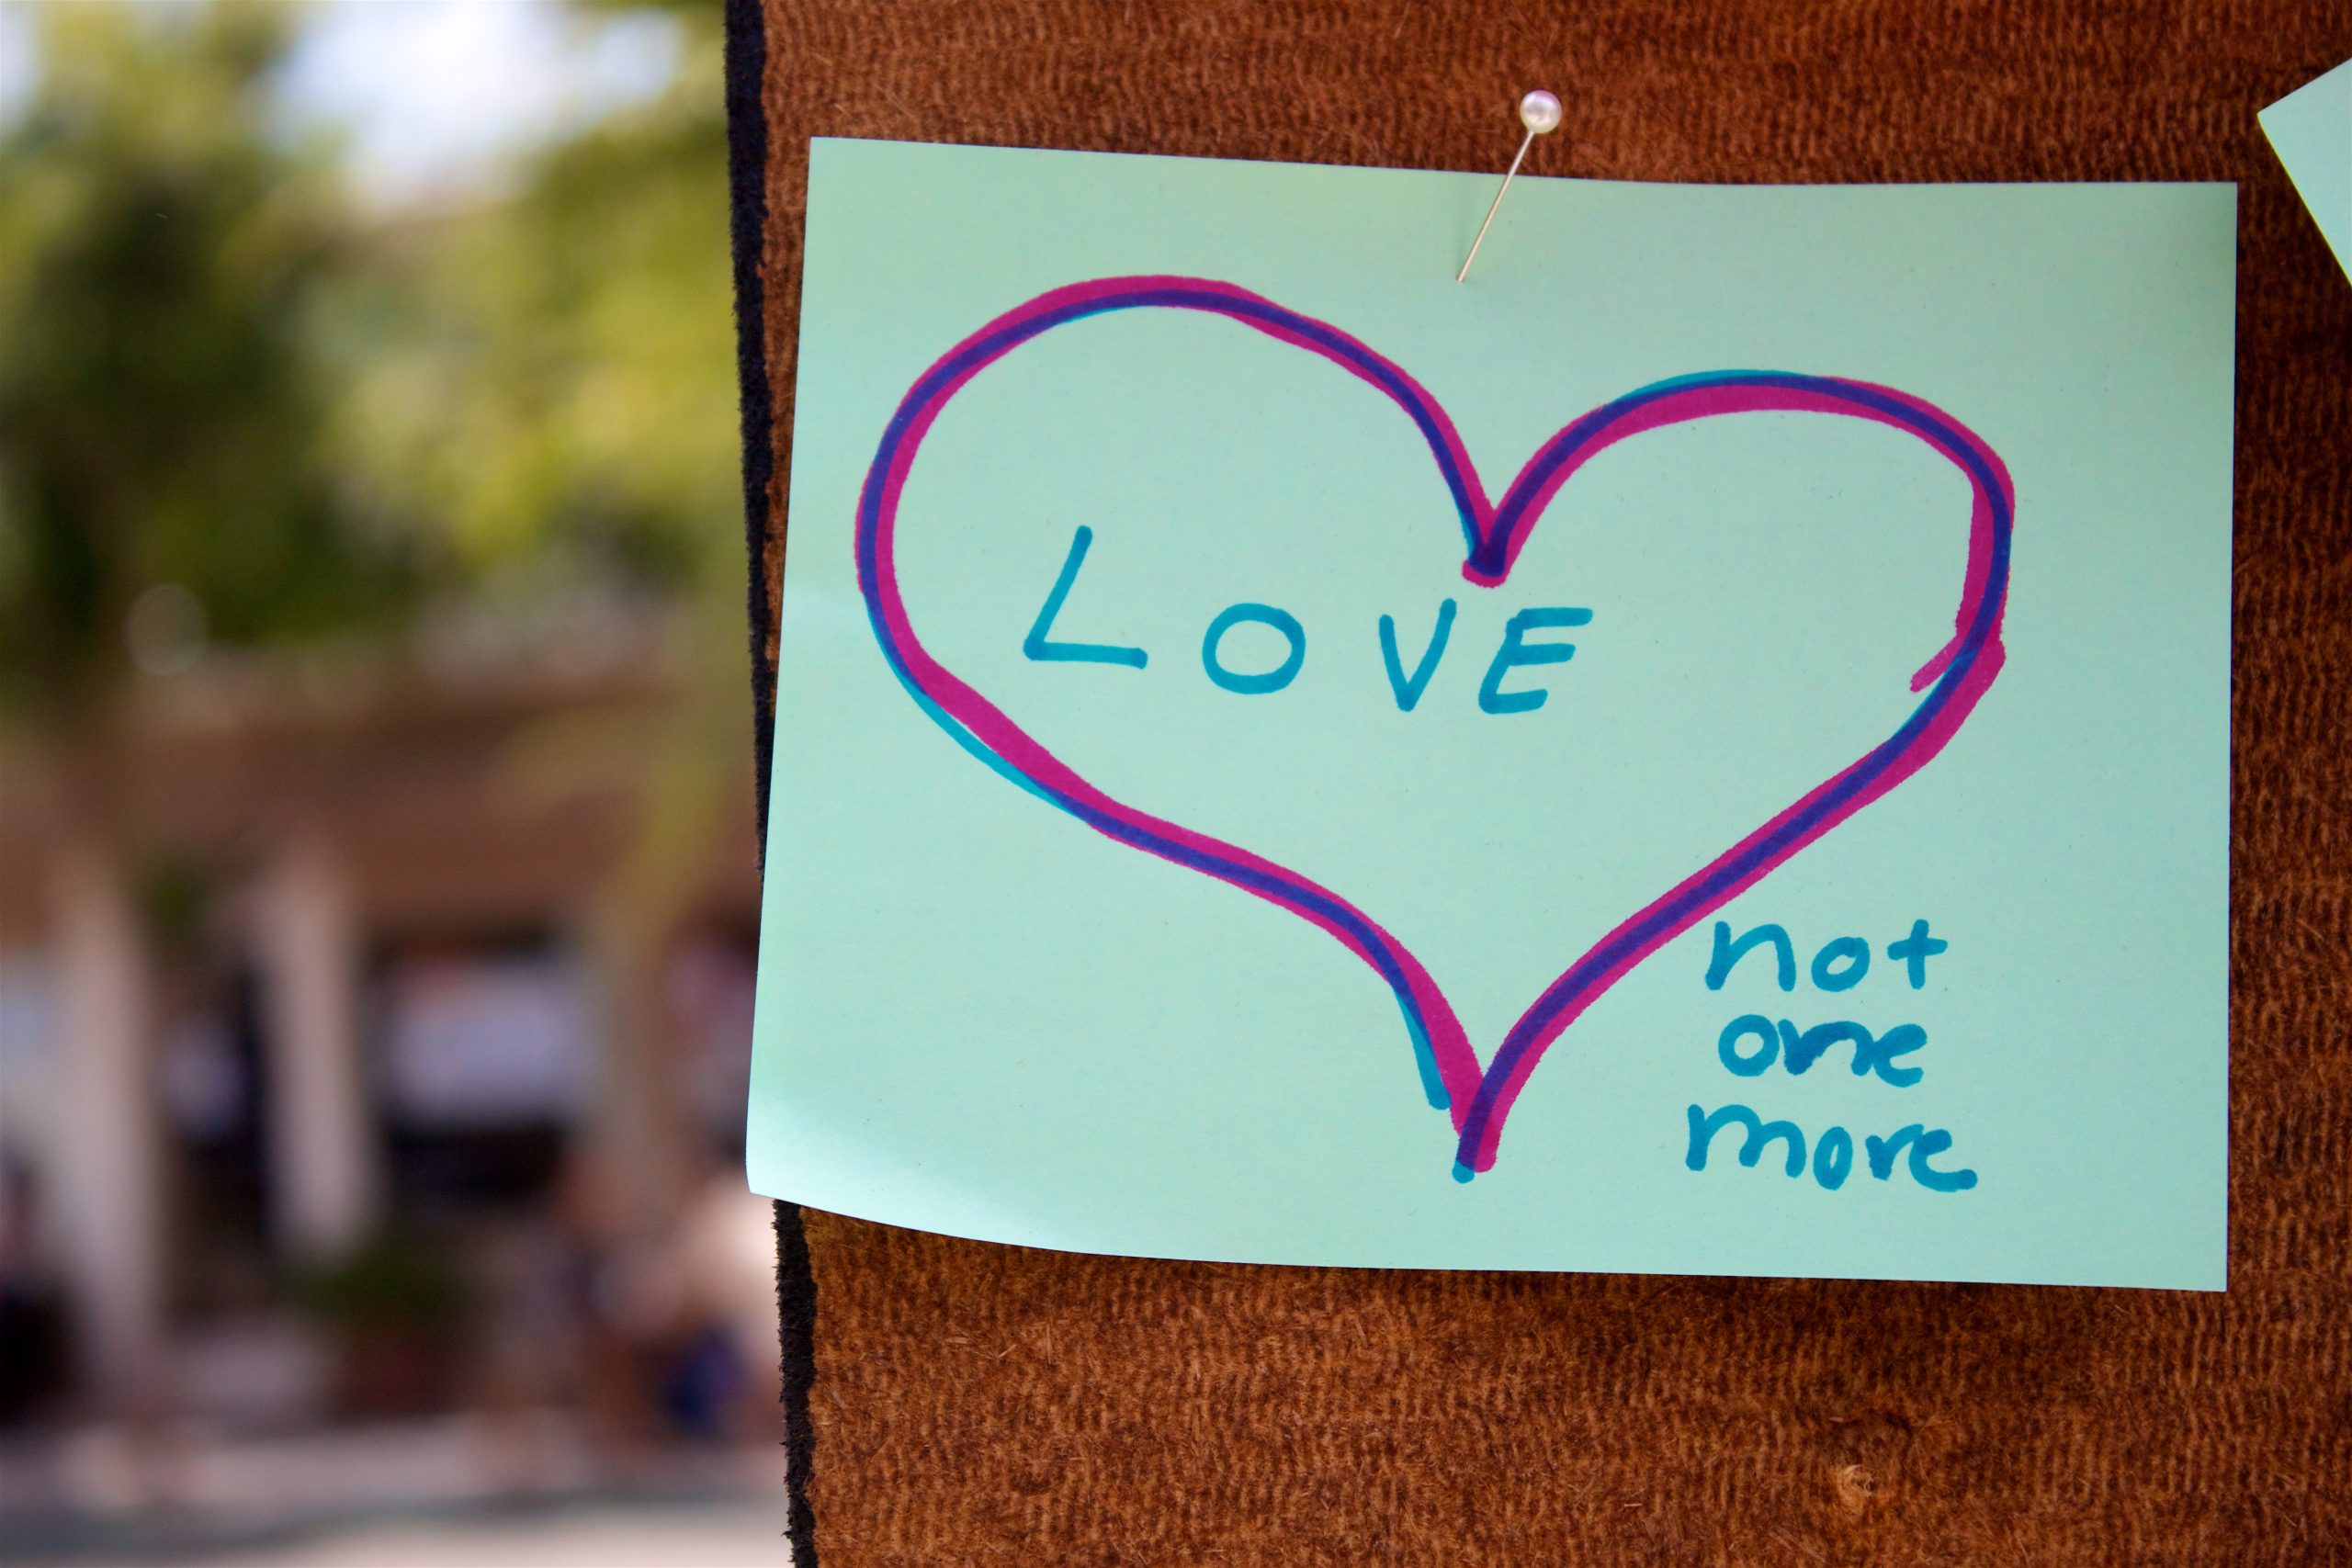 LOVE
not
one
more